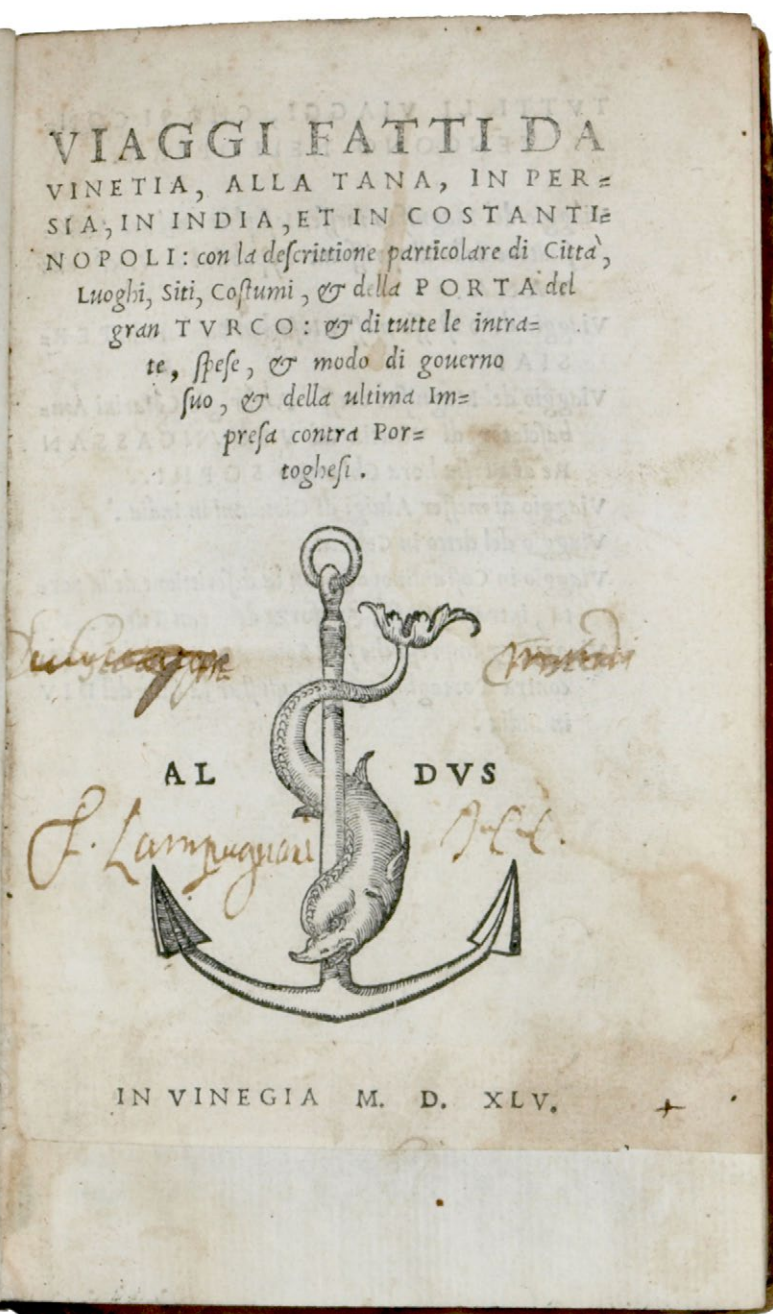 VIAGGI FATTI DA
VINETIA, ALLA TANA, IN PER=
SIA, IN INDIA, ET IN COSTANTI=
NOPOLI: con la descrittione particolare di Città,
Luoghi, Siti, Costumi, & della PORTA del
gran TVRCO: & di tutte le intra=
te, spese, & modo di gouerno
suo, & della ultima Im=
presa contra Por=
toghesi.
AL DVS
J. Lampugnani
IN VINEGIA M. D. XLV.